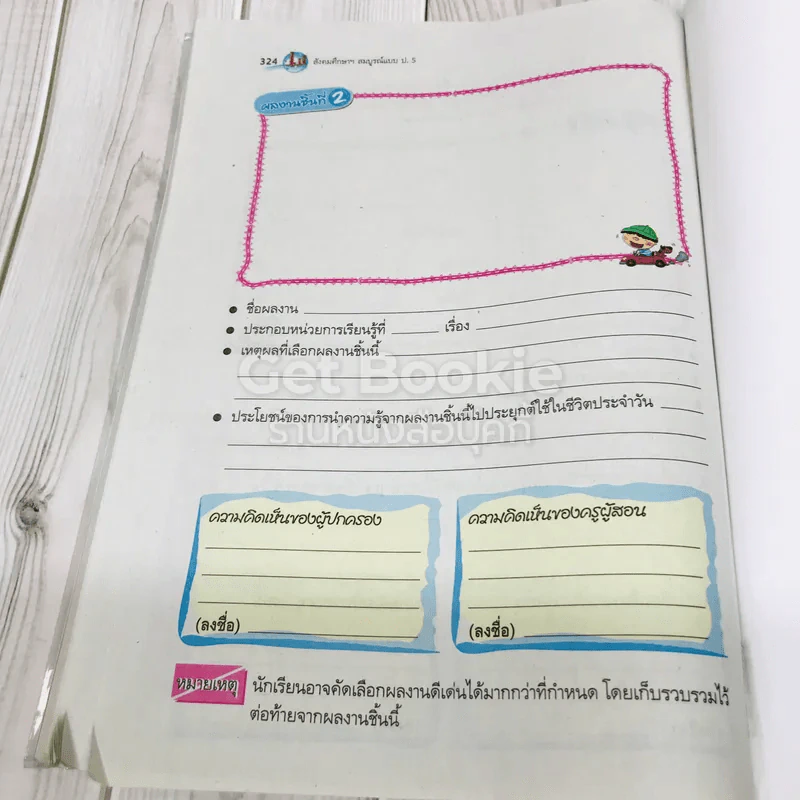 324 สังคมศึกษาฯ สมบูรณ์แบบ ป. 5
ผลงานชิ้นที่ 2
• ชื่อผลงาน
• ประกอบหน่วยการเรียนรู้ที่ เรื่อง
• เหตุผลที่เลือกผลงานชิ้นนี้
Get Bookie
• ประโยชน์ของการนำความรู้จากผลงานชิ้นนี้ไปประยุกต์ใช้ในชีวิตประจำวัน
ร้านหนังสือบุคกี้
ความคิดเห็นของผู้ปกครอง
(ลงชื่อ)
ความคิดเห็นของครูผู้สอน
(ลงชื่อ)
หมายเหตุ นักเรียนอาจคัดเลือกผลงานดีเด่นได้มากกว่าที่กำหนด โดยเก็บรวบรวมไว้
ต่อท้ายจากผลงานชิ้นนี้